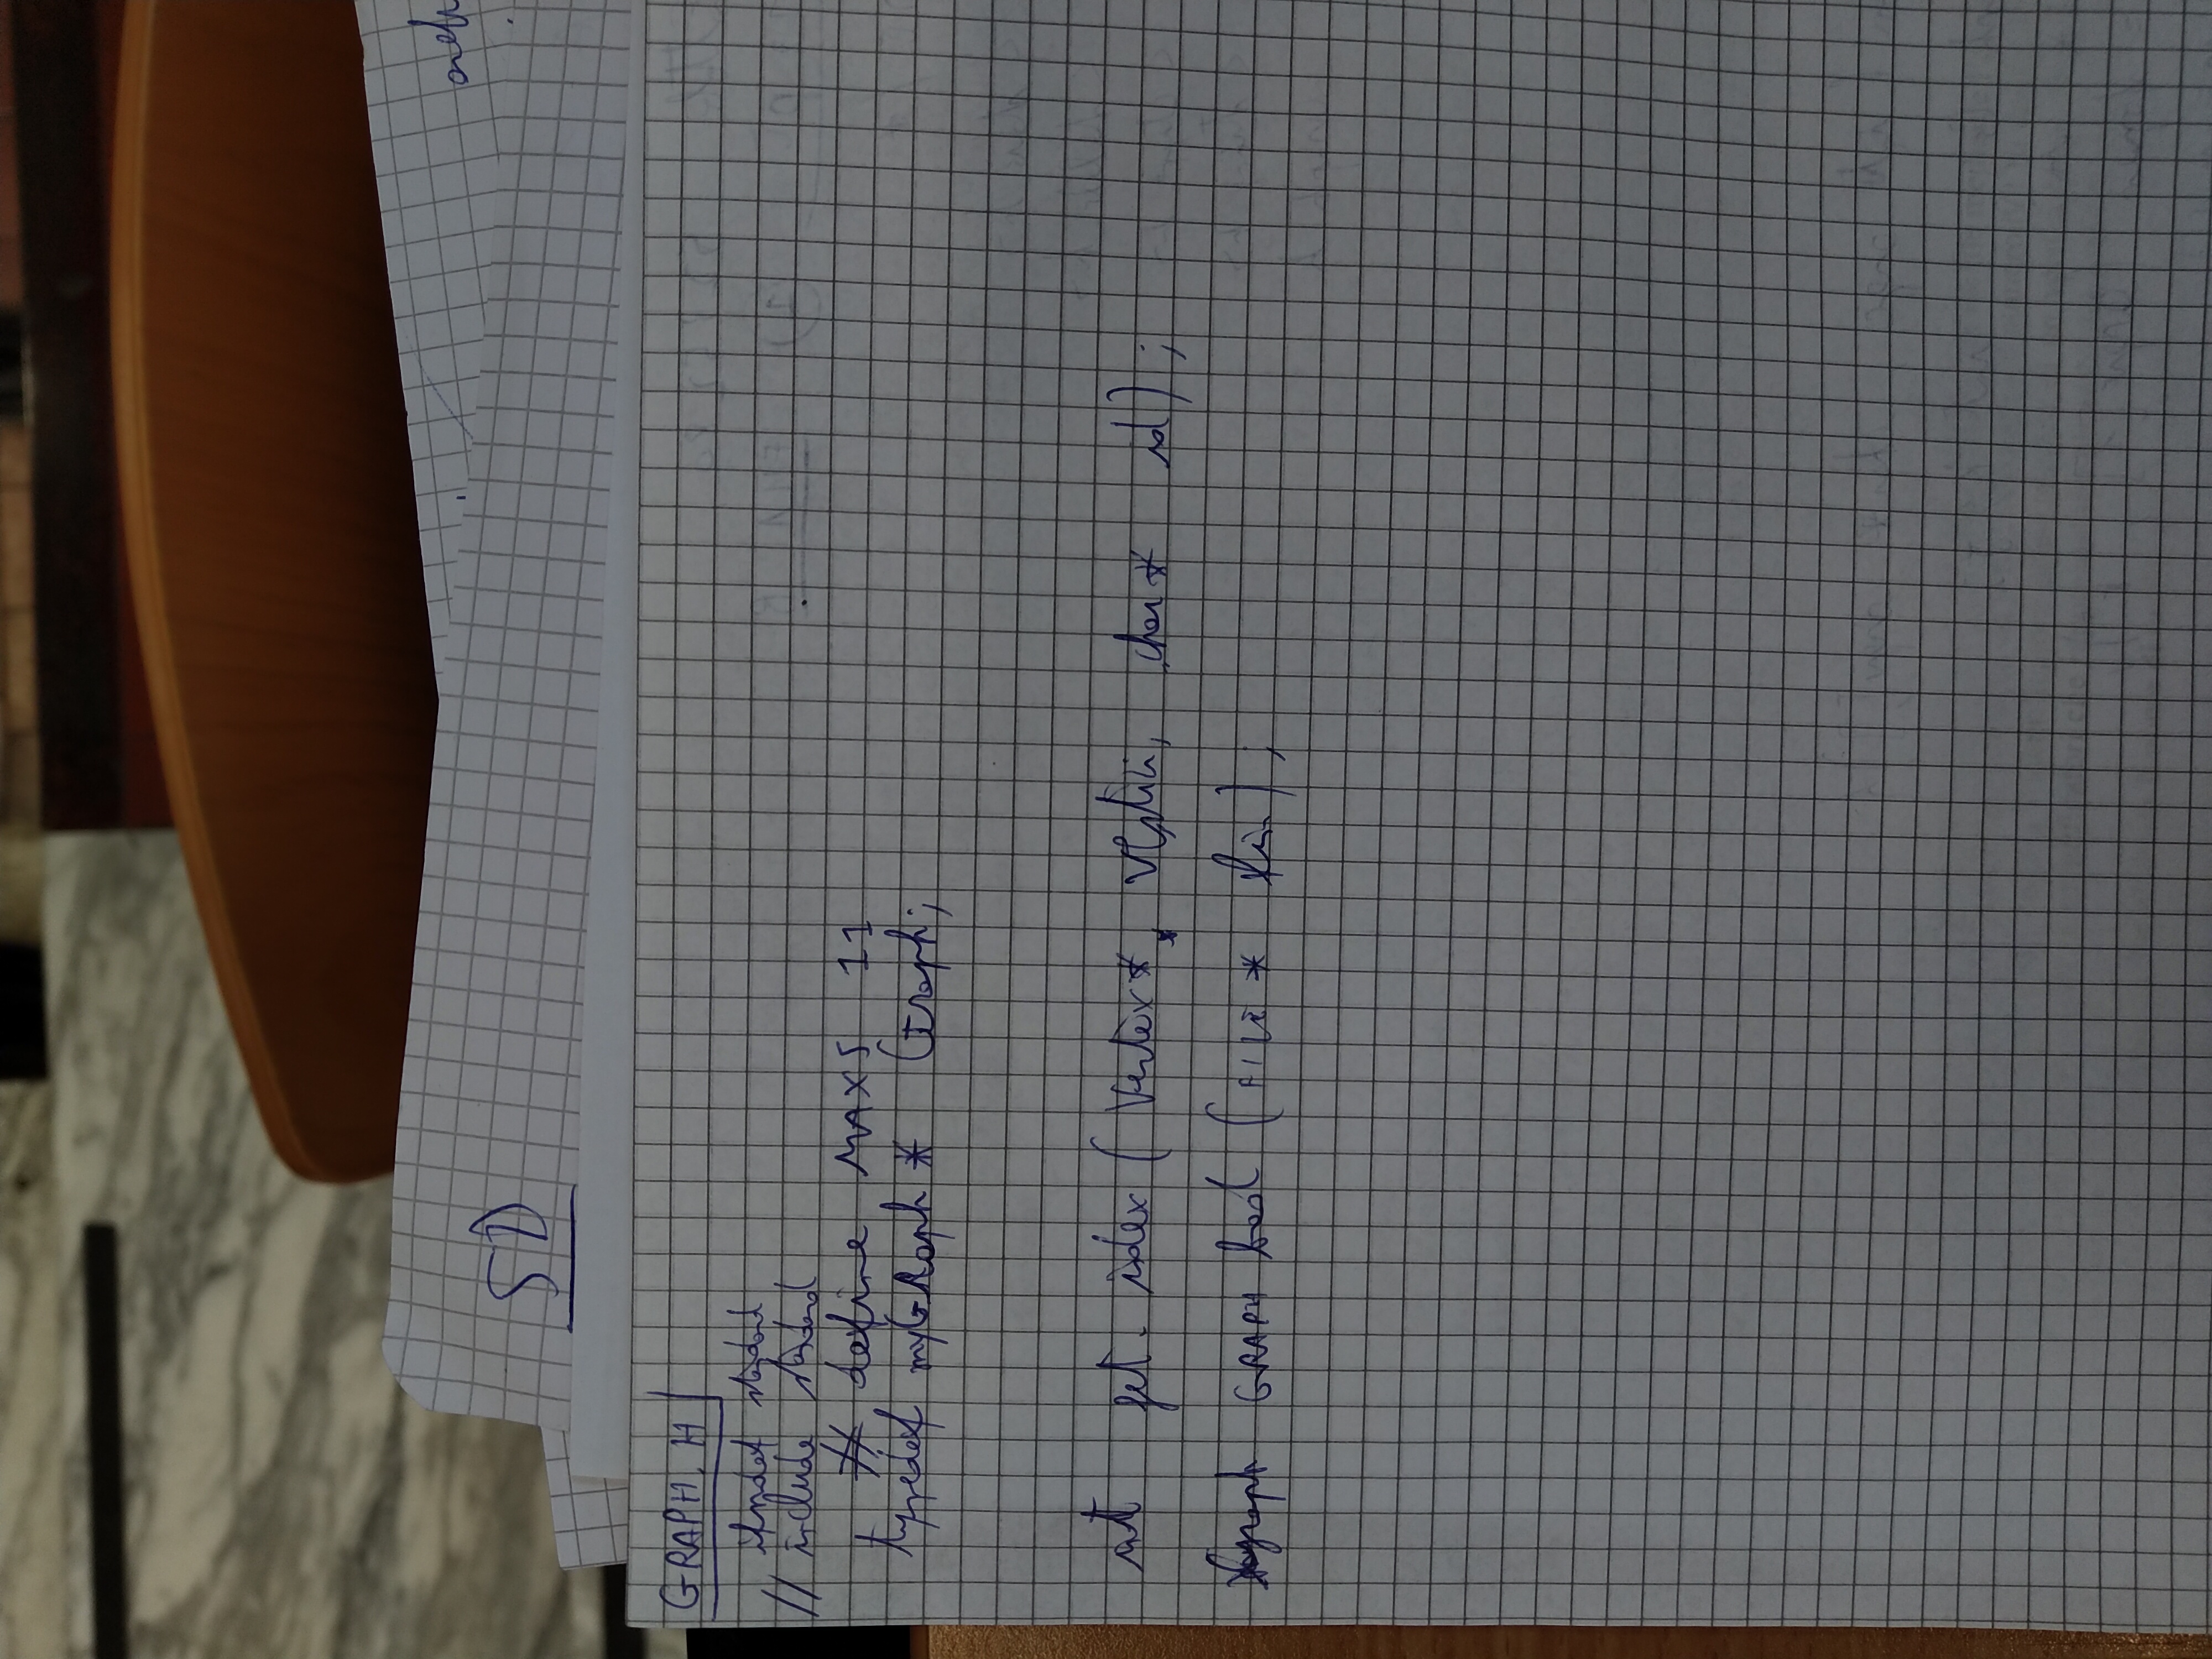 SD
GRAPH.H
ifndef standard
// include standard
# define MAXS 11
typedef myGraph * Graph;
int get_index (Vertex*, Vertici, char* id);
graph GRAPHload (FILE * fin);